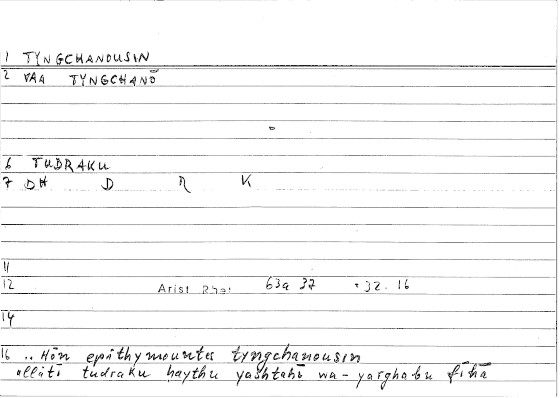 1 TYNGCHANOUSIN
2 VAA TYNGCHANŌ
6 TUDRAKU
7 DH D R K
11
12 Arist Rhet 63a 37 32. 16
14
16 .. Hōn epithymountes tyngchanousin
allātī tudraku ḥaythu yashtahī wa-yarghabu fīhā